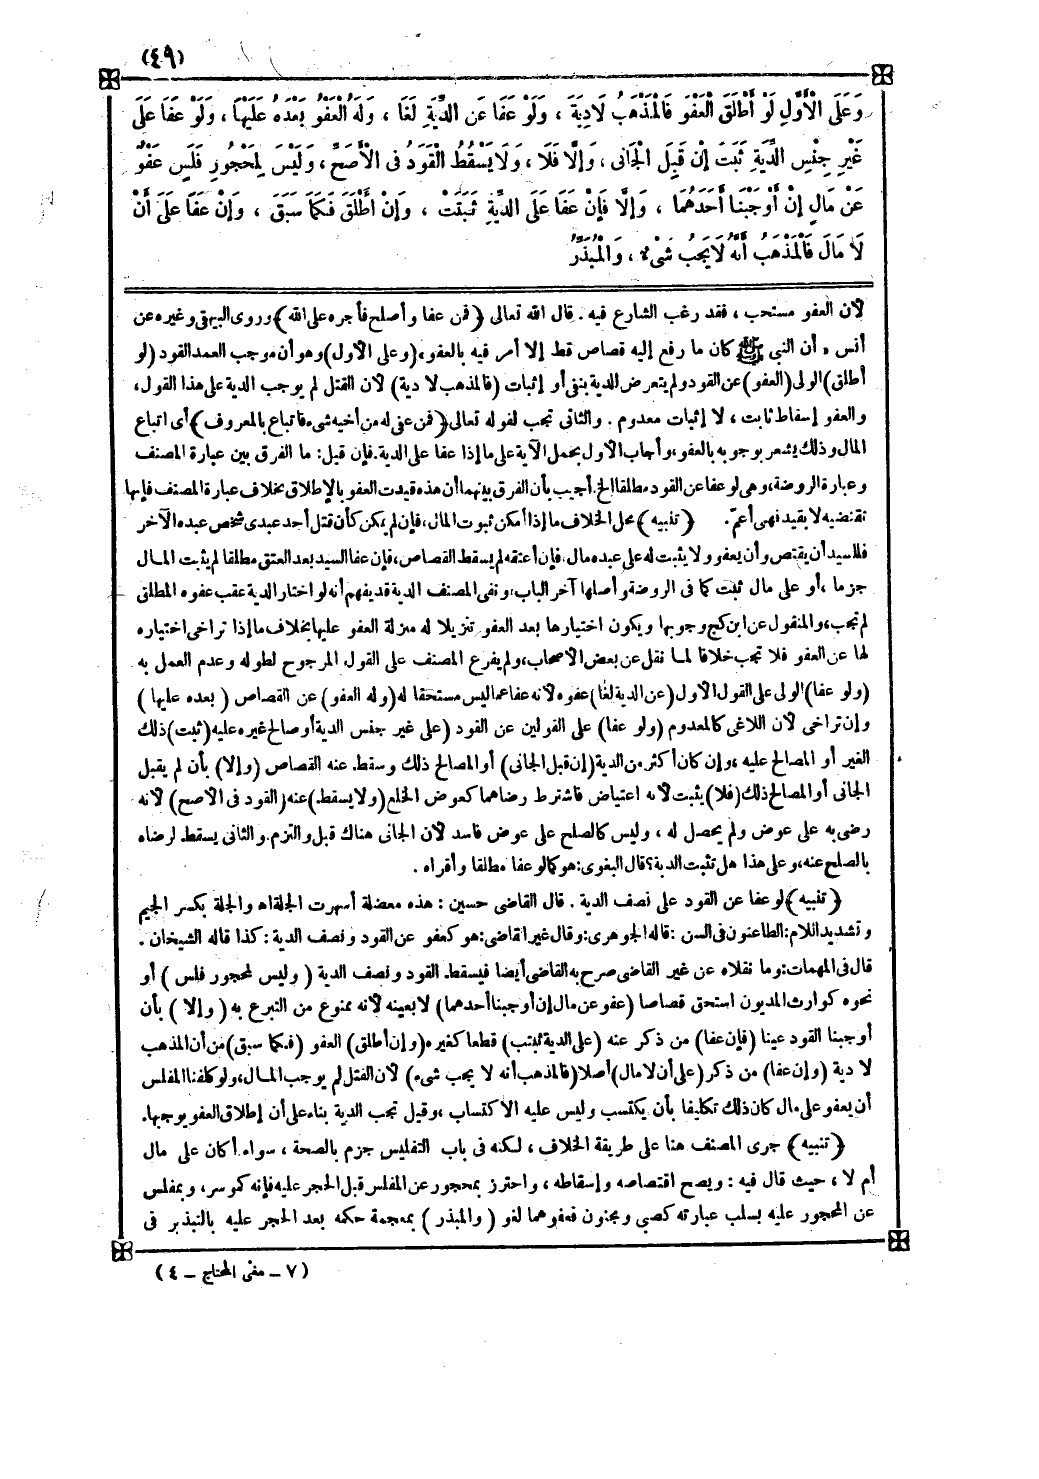 (٤٩)
وَعَلَى الْأَوَّلِ لَوْ أَطْلَقَ الْعَفْوَ فَالْمَذْهَبُ لَادِيَةَ ، وَلَوْ عَفَا عَنِ الدِّيَةِ لَغَا ، وَلَهُ الْعَفْوُ بَعْدَهُ عَلَيْهَا ، وَلَوْ عَفَا عَلَى
غَيْرِ جِنْسِ الدِّيَةِ ثَبَتَ إِنْ قَبِلَ الْجَانِى ، وَإِلَّا فَلَا ، وَلَا يَسْقُطُ الْقَوَدُ فِى الْأَصَحِّ ، وَلَيْسَ لِمَحْجُورِ فَلَسٍ عَفْوٌ
عَنْ مَالٍ إِنْ أَوْجَبْنَا أَحَدَهُمَا ، وَإِلَّا فَإِنْ عَفَا عَلَى الدِّيَةِ ثَبَتَتْ ، وَإِنْ أَطْلَقَ فَكَمَا سَبَقَ ، وَإِنْ عَفَا عَلَى أَنْ
لَا مَالَ فَالْمَذْهَبُ أَنَّهُ لَا يَجِبُ شَىْءٌ ، وَالْمُبَذِّرُ
لأن العفو مستحب ، فقد رغب الشارع فيه . قال الله تعالى ﴿ فمن عفا وأصلح فأجره على الله ﴾ وروى البيهقى وغيره عن
أنس « أن النبى ﷺ كان ما رفع إليه قصاص قط إلا أمر فيه بالعفو» (وعلى الأول) وهو أن موجب العمد القود (لو
أطلق) الولى (العفو) عن القود ولم يتعرض للدية بنفى أو إثبات (فالمذهب لا دية) لأن القتل لم يوجب الدية على هذا القول،
والعفو إسقاط ثابت ، لا إثبات معدوم . والثانى تجب لقوله تعالى ﴿ فمن عفى له من أخيه شىء فاتباع بالمعروف ﴾ أى اتباع
المال وذلك يشعر بوجوبه بالعفو، وأجاب الأول بحمل الآية على ما إذا عفا على الدية. فإن قيل: ما الفرق بين عبارة المصنف
وعبارة الروضة، وهى لو عفا عن القود مطلقا الخ. أجيب بأن الفرق بينهما أن هذه قيدت العفو بالإطلاق بخلاف عبارة المصنف فإنها
تقتضيه لا بقيد فهى أعمّ. ﴿ تنبيه ﴾ محل الخلاف ما إذا أمكن ثبوت المال، فإن لم يمكن كأن قتل أحد عبدى شخص عبده الآخر
فللسيد أن يقتص وأن يعفو ولا يثبت له على عبده مال، فإن أعتقه لم يسقط القصاص، فإن عفا السيد بعد العتق مطلقا لم يثبت المال
جزما ، أو على مال ثبت كما فى الروضة وأصلها آخر الباب، ونفى المصنف الدية قد يفهم أنه لو اختار الدية عقب عفوه المطلق
لم تجب، والمنقول عن ابن كج وجوبها ويكون اختيارها بعد العفو تنزيلا له منزلة العفو عليها بخلاف ما إذا تراخى اختياره
لها عن العفو فلا تجب خلافا لما نقل عن بعض الأصحاب، ولم يفرع المصنف على القول المرجوح لطوله وعدم العمل به
(ولو عفا) الولى على القول الأول (عن الدية لغا) عفوه لأنه عفا عما ليس مستحقا له (وله العفو) عن القصاص ( بعده عليها )
وإن تراخى لأن اللاغى كالمعدوم (ولو عفا) على القولين عن القود (على غير جنس الدية) أو صالح غيره عليه (ثبت) ذلك
الغير أو المصالح عليه ، وإن كان أكثر من الدية (إن قبل الجانى) أو المصالح ذلك وسقط عنه القصاص (وإلا) بأن لم يقبل
الجانى أو المصالح ذلك (فلا) يثبت لأنه اعتياض فاشترط رضاهما كعوض الخلع (ولا يسقط) عنه (القود فى الأصح) لأنه
رضى به على عوض ولم يحصل له ، وليس كالصلح على عوض فاسد لأن الجانى هناك قبل والتزم. والثانى يسقط لرضاه
بالصلح عنه، وعلى هذا هل تثبت الدية؟ قال البغوى: هو كما لو عفا مطلقا وأقراه .
﴿ تنبيه ﴾ لو عفا عن القود على نصف الدية . قال القاضى حسين : هذه معضلة أسهرت الجلة اه والجلة بكسر الجيم
وتشديد اللام: الطاعنون فى السن :قاله الجوهرى: وقال غير القاضى: هو كعفو عن القود ونصف الدية : كذا قاله الشيخان .
قال فى المهمات: وما نقلاه عن غير القاضى صرح به القاضى أيضا فيسقط القود ونصف الدية ( وليس لمحجور فلس ) أو
نحوه كوارث المديون استحق قصاصا (عفو عن مال إن أوجبنا أحدهما) لا بعينه لأنه ممنوع من التبرع به ( وإلا ) بأن
أوجبنا القود عينا (فإن عفا) من ذكر عنه (على الدية ثبتت) قطعا كغيره (وإن أطلق) العفو (فكما سبق) من أن المذهب
لا دية (وإن عفا) من ذكر (على أن لا مال) أصلا (فالمذهب أنه لا يجب شىء) لأن القتل لم يوجب المال، ولو كلفنا المفلس
أن يعفو على مال كان ذلك تكليفا بأن يكتسب وليس عليه الاكتساب ، وقيل تجب الدية بناء على أن إطلاق العفو يوجبها.
﴿ تنبيه ﴾ جرى المصنف هنا على طريقة الخلاف ، لكنه فى باب التفليس جزم بالصحة ، سواء أكان على مال
أم لا ، حيث قال فيه : ويصح اقتصاصه وإسقاطه ، واحترز بمحجور عن المفلس قبل الحجر عليه فإنه كموسر، وبمفلس
عن المحجور عليه بسلب عبارته كصبى ومجنون فعفوهما لغو ( والمبذر ) بمعجمة حكمه بعد الحجر عليه بالتبذير فى
( ٧ - مغنى المحتاج - ٤ )